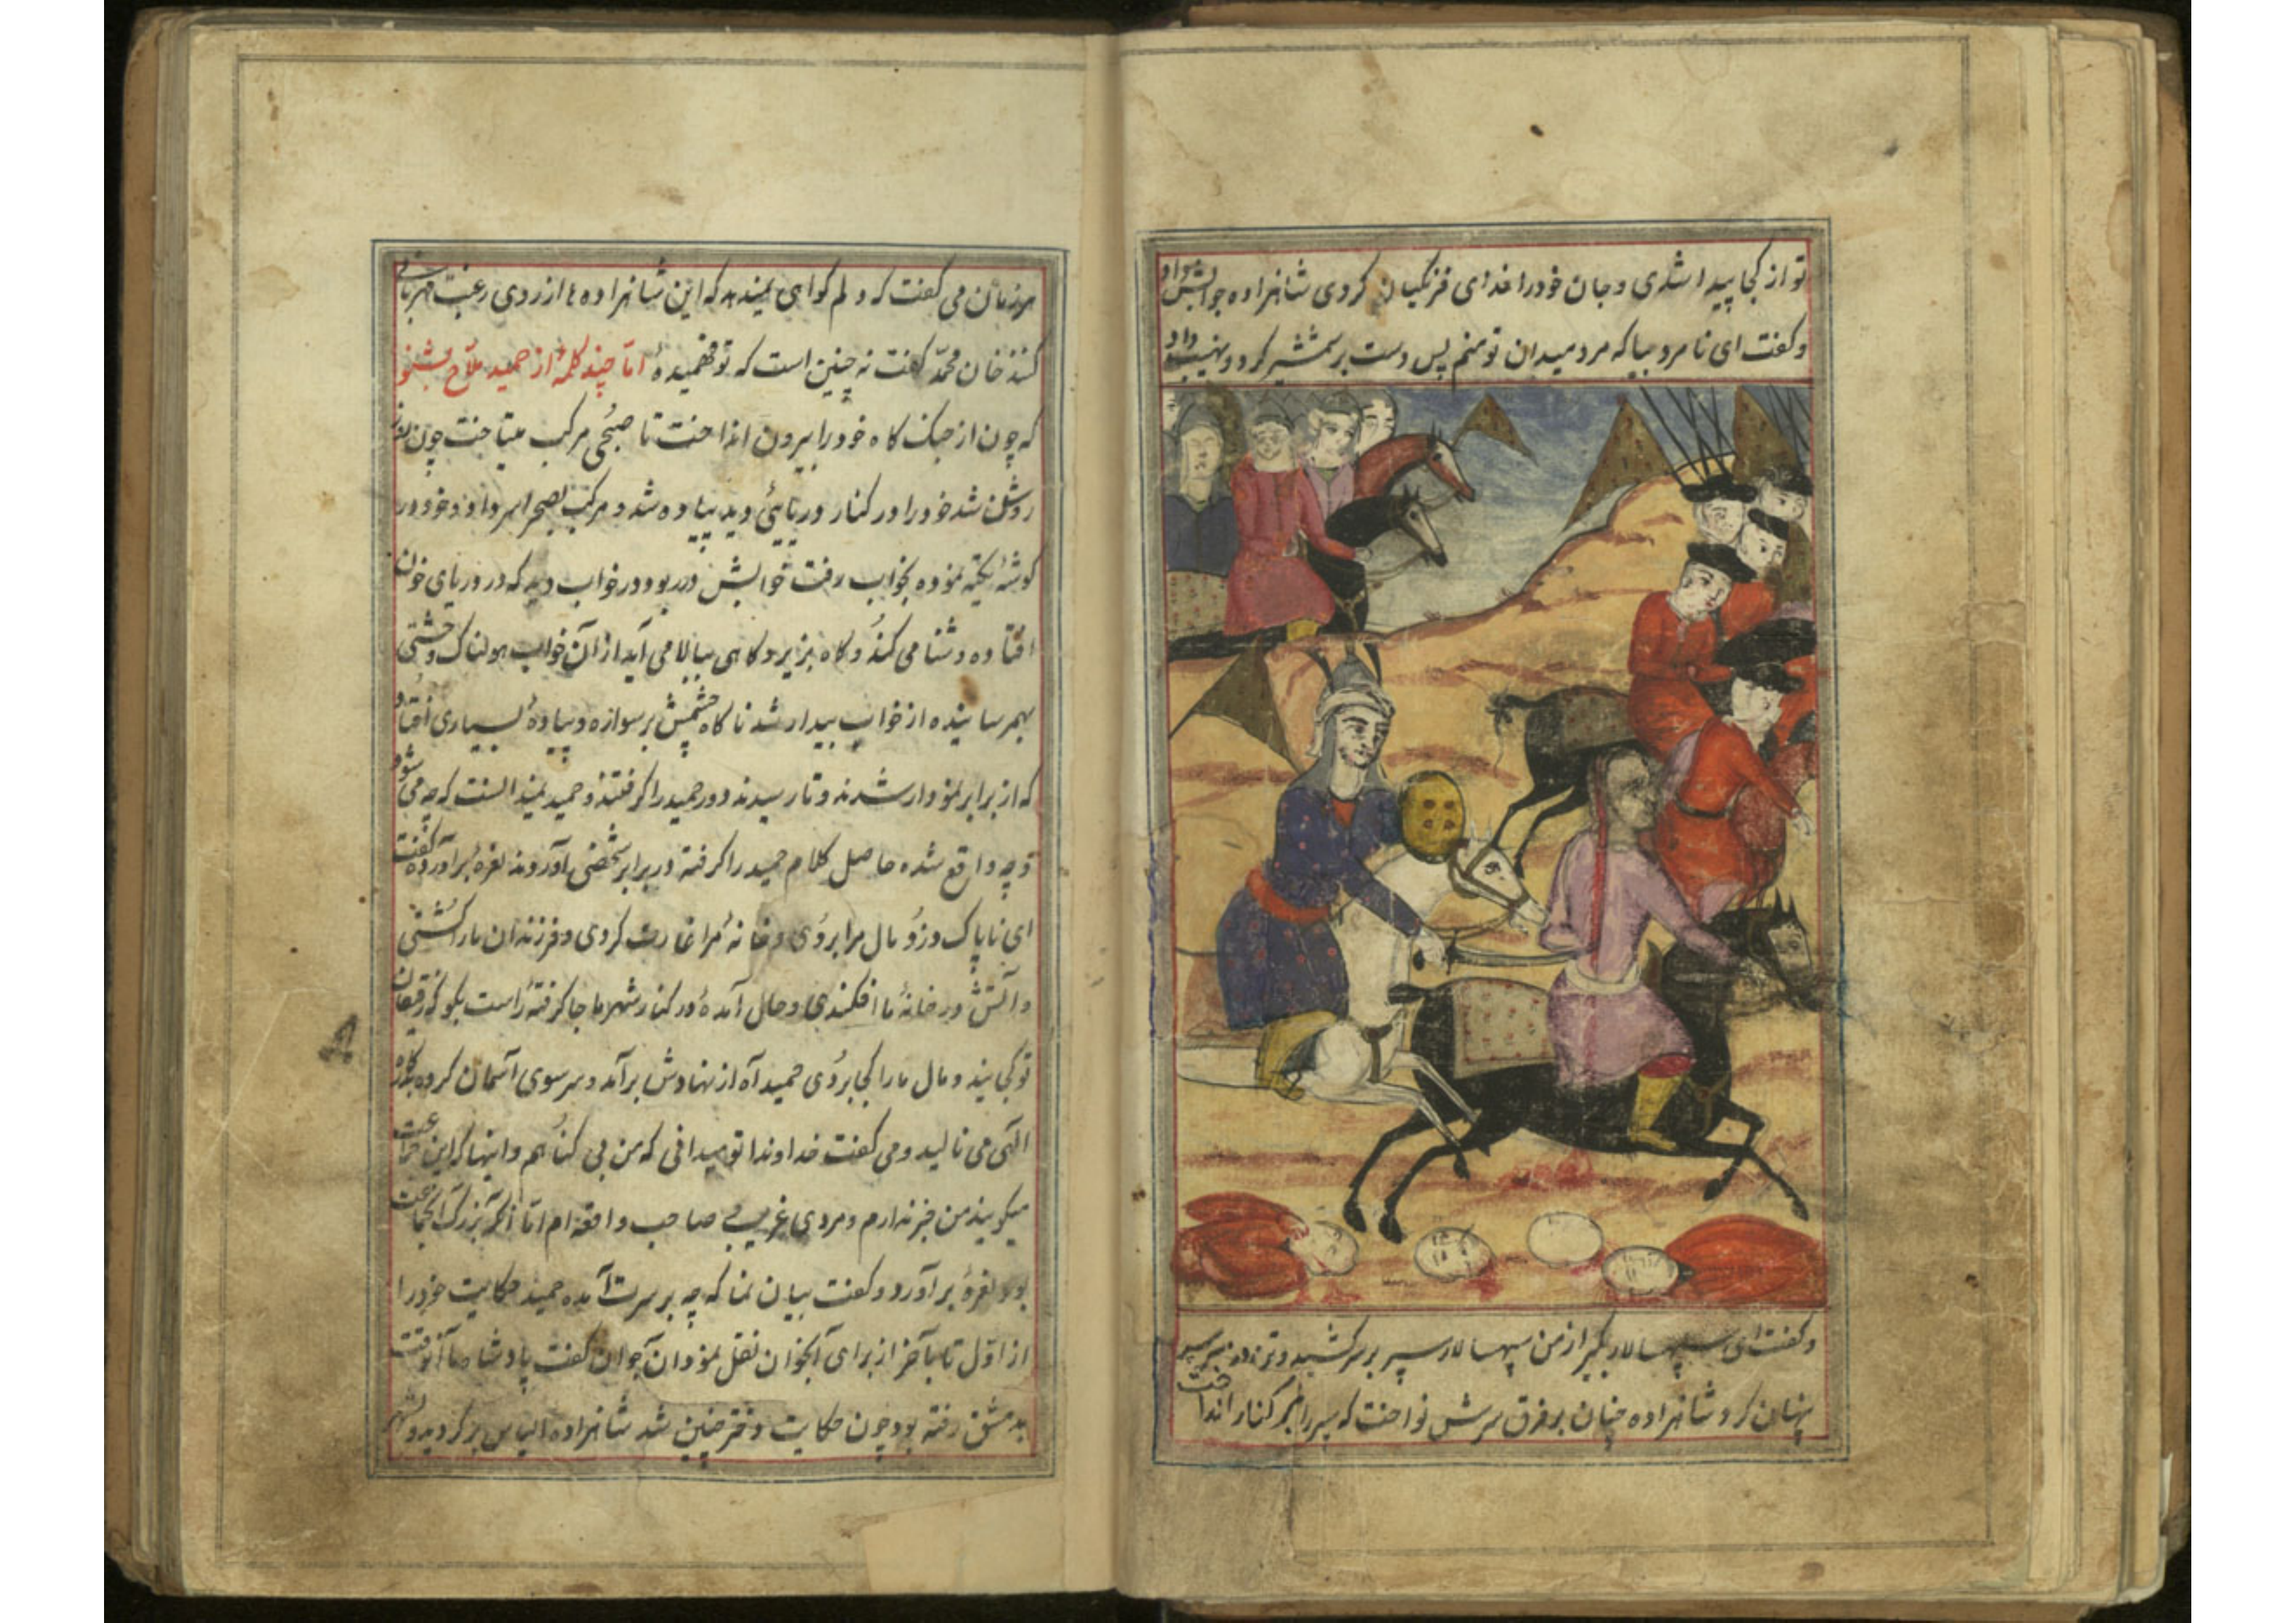 تو از کجا پیدا شدی و جان خود را فدای فرنگیان کردی شاهزاده جوابش داد
و گفت ای نامرد بیا که مرد میدان تو منم پس دست بر شمشیر کرد و نهیب داد
و گفت ای سپهسالار بگیر از من سپهسالار سپر بر سر کشید و در زیر سپر
پنهان کرد شاهزاده چنان بر فرق سرش نواخت که سپر را بر کنار انداخت
هرزمان می گفت که دلم گواهی میدهد که این شاهزاده از روی رغبت مهربانی
کند خان محمد گفت نه چنین است که تو فهمیدهٔ اما چند کلمهٔ از حمید ملاح بشنو
که چون از جنک کاه خود را بیرون انداخت تا صبحی مرکب میتاخت چون روز
روشن شد خود را در کنار دریایی دید پیاده شد و مرکب بصحرا سر داد و خود در
کوشهٔ تکیه نموده بخواب رفت خوابش در ربود در خواب دید که در دریای خون
افتاده و شنا می کند و کاه بزیر و کاهی ببالا می آید از آن خواب هولناک وحشتی
بهمرسانیده از خواب بیدار شد ناکاه چشمش بر سواره و پیادهٔ بسیاری افتاد
که از برابر نمودار شدند و تا رسیدند دور حمید را کرفتند و حمید نمیدانست که چه می شود
و چه واقع شده حاصل کلام حمید را کرفته در برابر شخصی آوردند نعرهٔ برآورده گفت
ای ناپاک دزد مال مرا بردی و خانهٔ مرا غارت کردی و فرزندان ما را کشتی
و آتش در خانهٔ ما افکندی و حال آمدهٔ در کنار شهر ما جا کرفتهٔ راست بکو که رفیقان
تو کجایند و مال ما را کجا بردی حمید آه از نهادش برآمد و سر سوی آسمان کرده بدرکاه
الهی می نالید و می گفت خداوندا تو میدانی که من بی کناهم و اینها که این جماعت
میکویند من خبر ندارم و مردی غریب صاحب واقعه ام اما آنکه بزرک آنجماعت
بود نعرهٔ برآورد و گفت بیان نما که چه بر سرت آمده حمید حکایت خود را
از اول تا بآخر از برای آنجوان نقل نمود آن جوان گفت پادشاه ما آنوقت
بدمشق رفته بود چون حکایت دختر چنین شد شاهزاده الیاس برکردید و بشهر